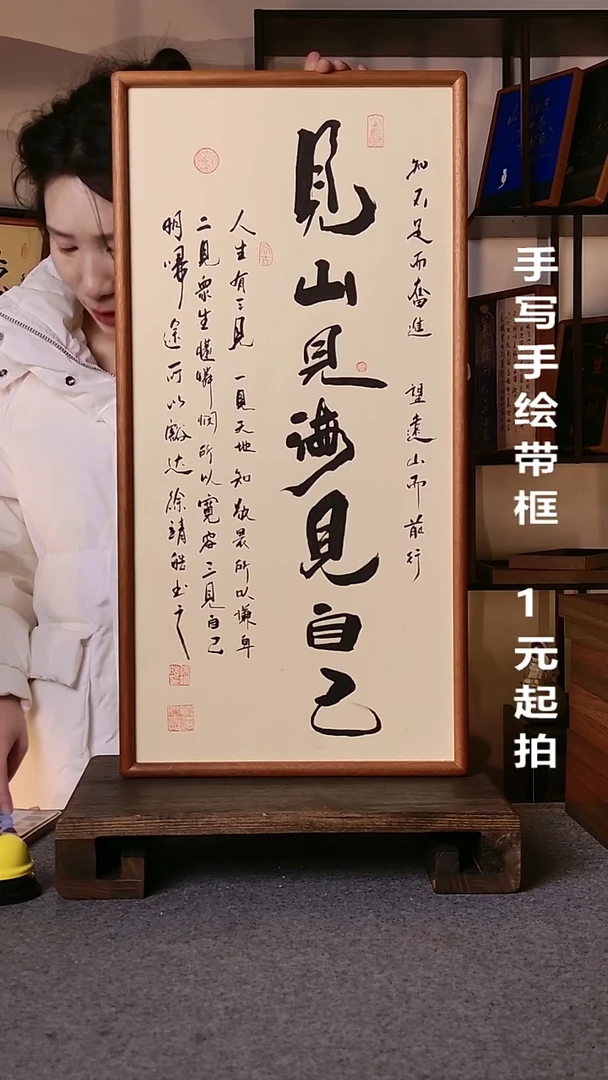 知不足而奮進 望遠山而前行
見山見海見自己
人生有三見 一見天地知敬畏所以謙卑
二見衆生懂憐憫所以寬容三見自己
明歸途所以豁达徐靖
手写手绘带框 1元起拍